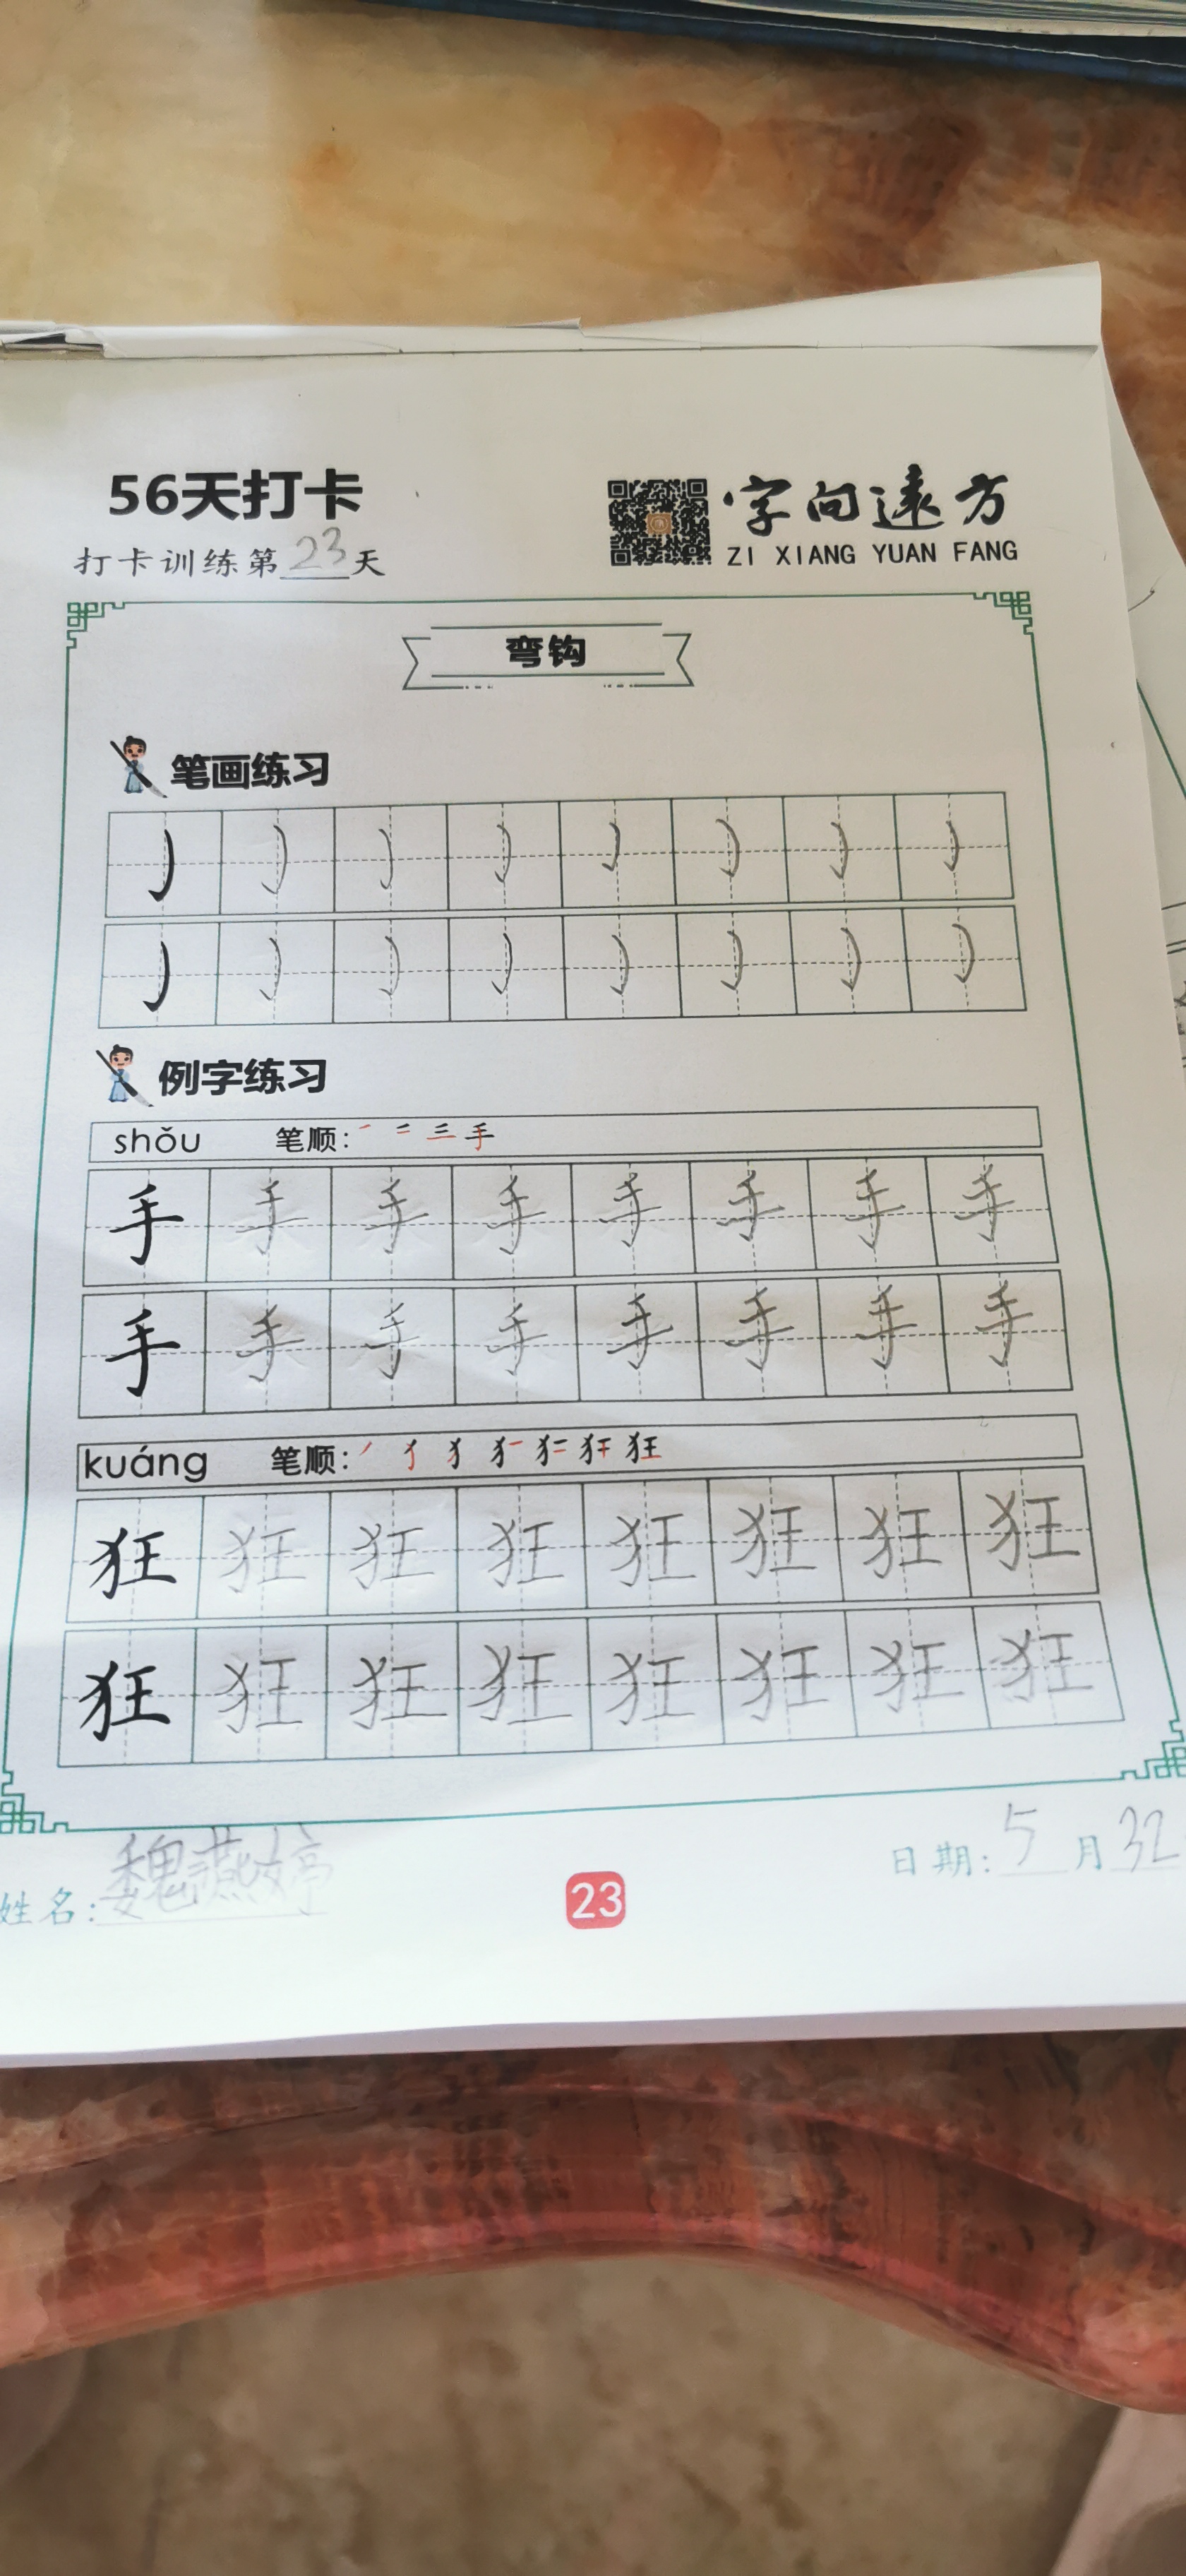 56天打卡
打卡训练第23天
字向远方
ZI XIANG YUAN FANG
弯钩
笔画练习
例字练习
shǒu 笔顺: 手
手 手 手 手 手 手 手 手
手 手 手 手 手 手 手 手
kuáng 笔顺: 狂
狂 狂 狂 狂 狂 狂 狂 狂
狂 狂 狂 狂 狂 狂 狂 狂
姓名: 魏燕婷
23
日期: 5月32